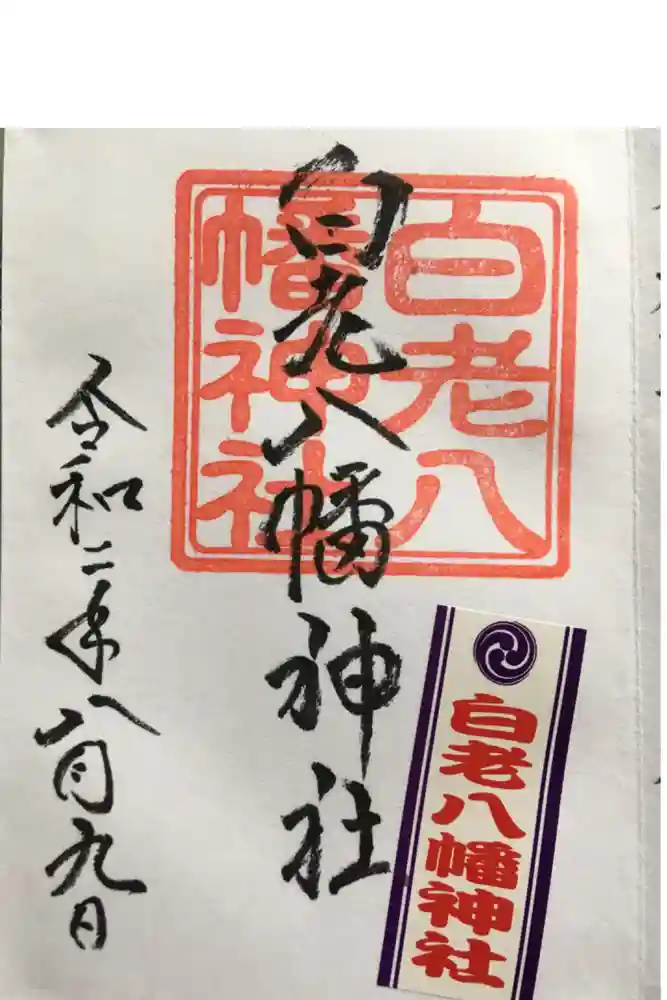 白老八
幡神社
白老八幡神社
令和二年八月九日
白老八幡神社